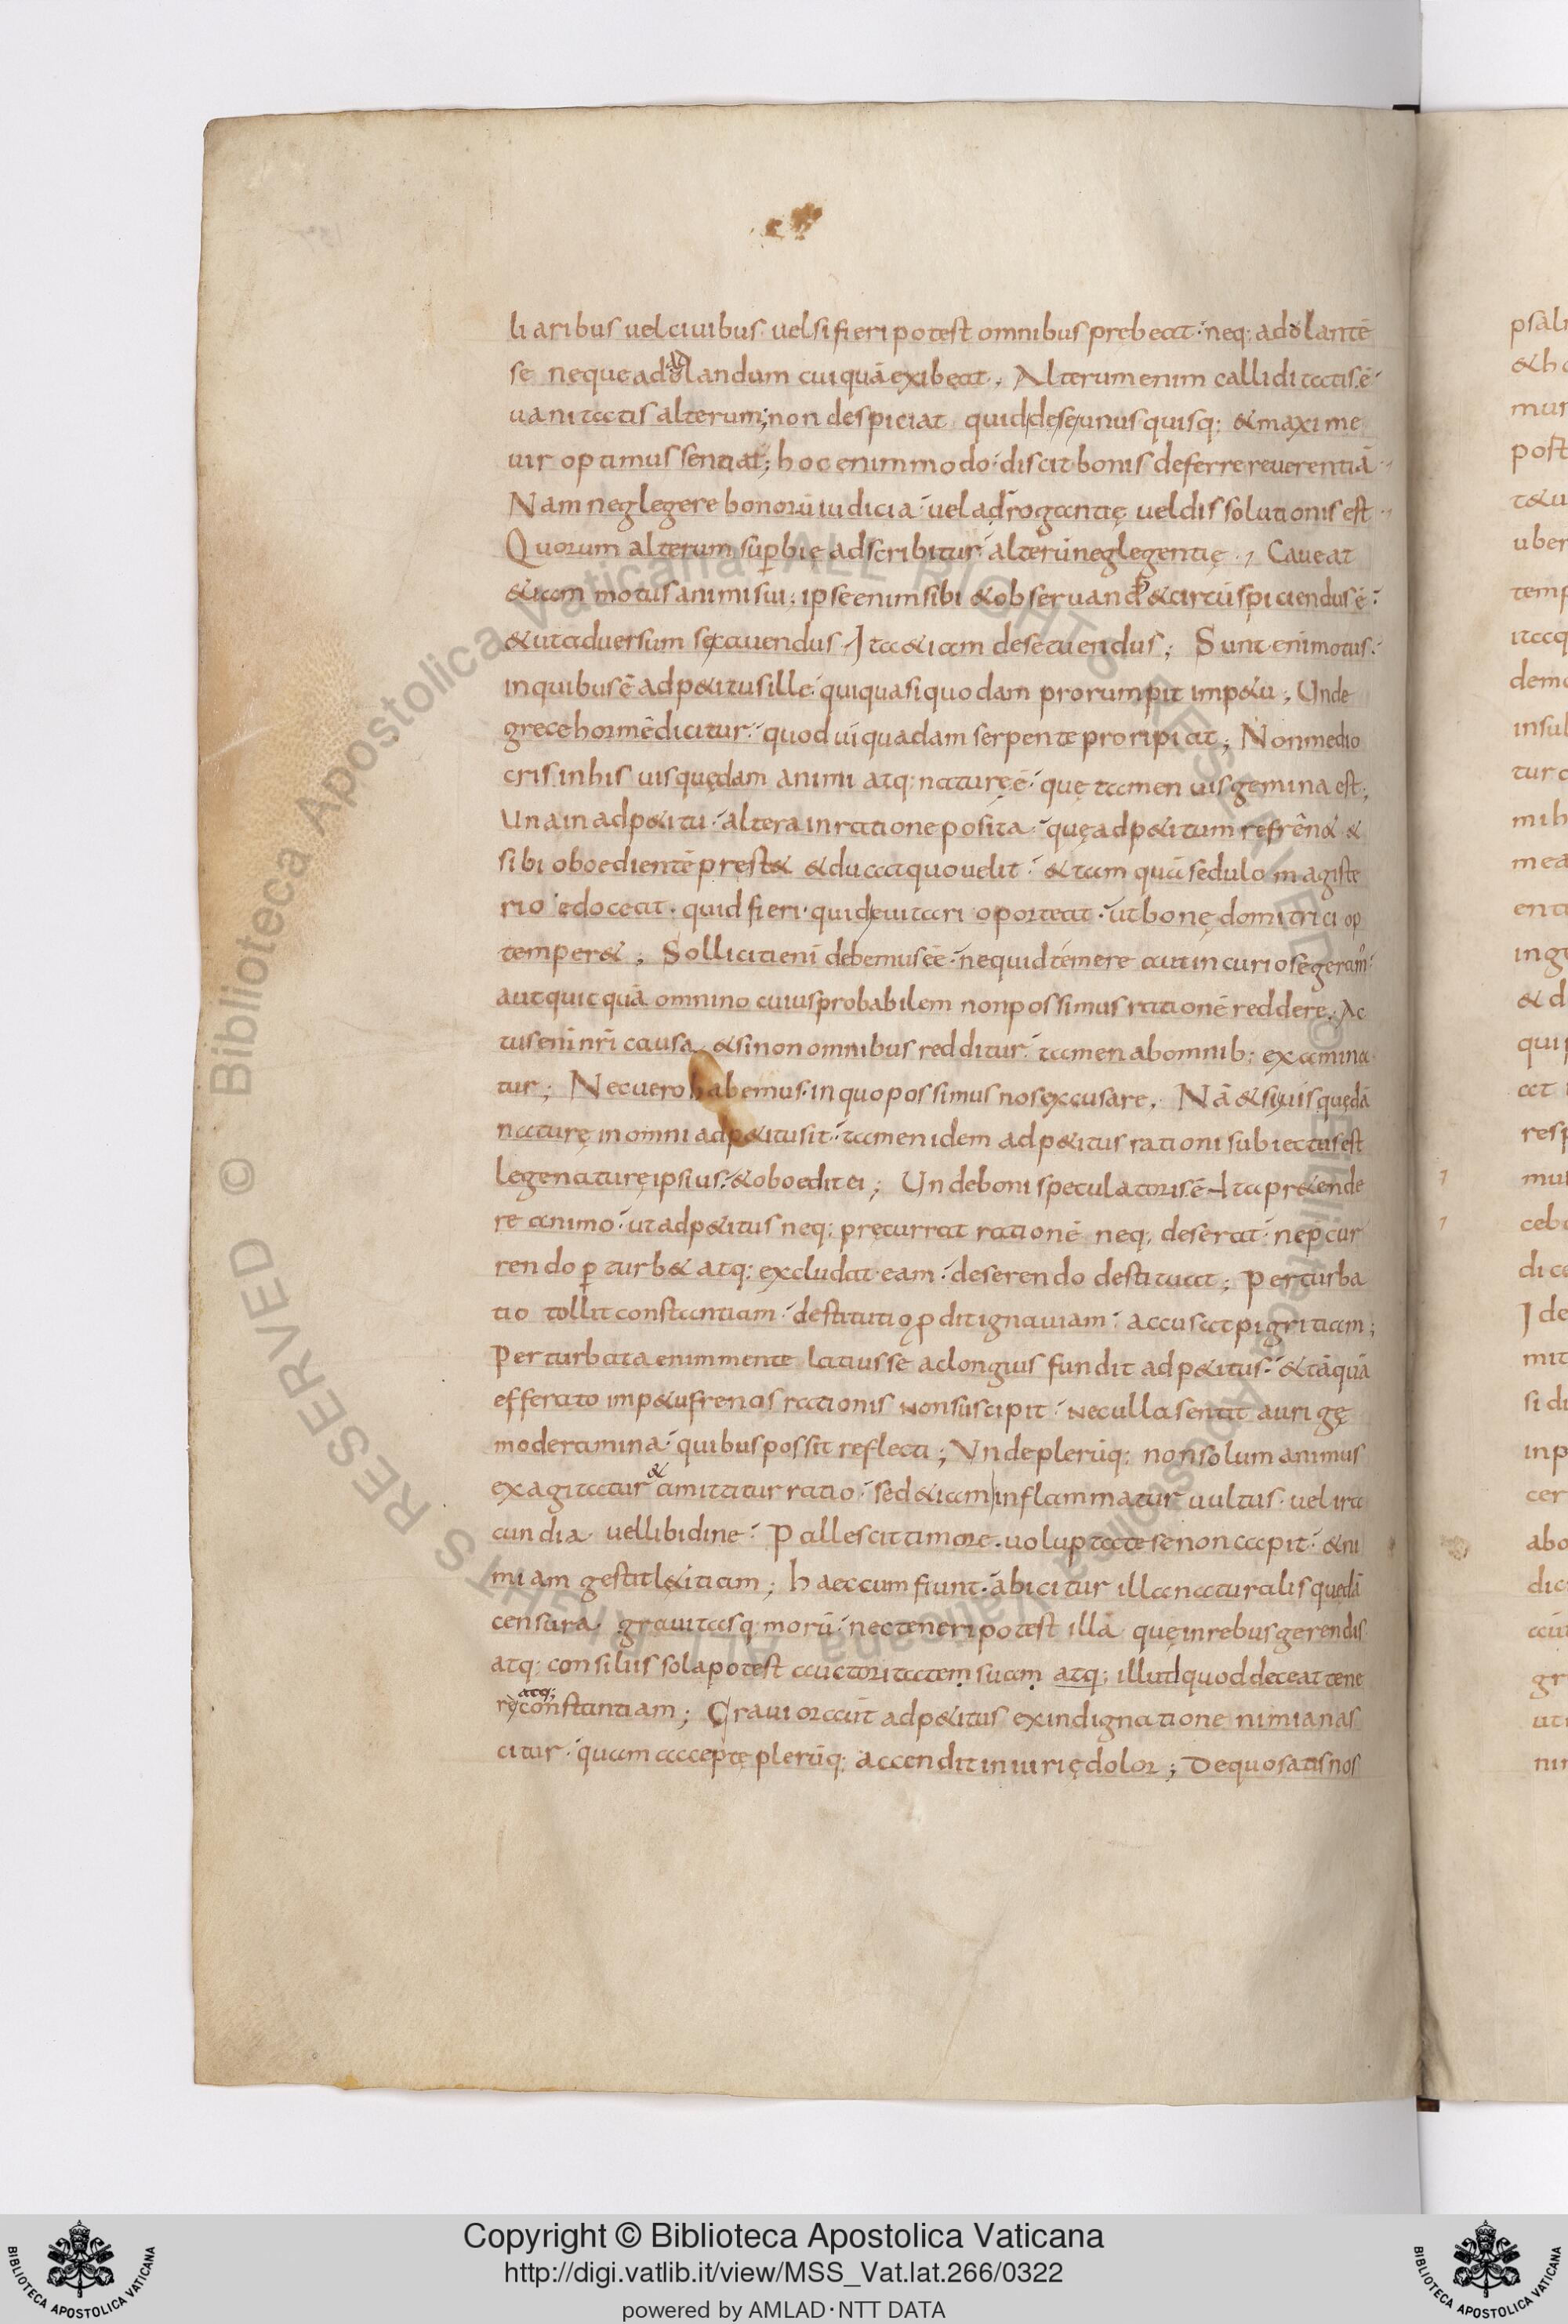 liaribus uel ciuibus· uel si fieri potest omnibus prębeat· neq; adolantē
se neque adolandum cuiquā exibeat; Alterum enim calliditatis ē
uanitatis alterum; non despiciat quid de se unus quisq; & maxime
uir optimus sentiat; hoc enim modo· discit bonis deferre reuerentiā
Nam neglegere bonorū iudicia· uel adrogantię uel dissolutionis est
Quorum alterum supbię adscribitur· alterū neglegentię· Caueat
&iam motus animi sui; ipse enim sibi & obseruand & circūspiciendus ē
& ut aduersum se cauendus Ita &iam de se tuendus; Sunt enī motus
in quibus ē adp&itus ille· qui quasi quodam prorumpit imp&u; Unde
grece hormē dicitur· quod ui quadam serpente proripiat; Non medio
cris in his uis quędam animi atq; naturę ē· quę tamen uis gemina est;
Una in adp&itu· altera in ratione posita· quę adp&itum refrēn& &
sibi oboedientē pręst& & ducat quo uelit· & tam quā sedulo magiste
rio edoceat· quid fieri· quid euitari oporteat· ut bonę domitrici op
temper&; Solliciti enī debemus eē· ne quid temere aut incuriose geram
aut quicquā omnino cuius probabilem non possimus rationē reddere, Ac
tus enī nrī causa & si non omnibus redditur· tamen ab omnib; examina
tur; Nec uero habemus· in quo possimus nos excusare, Nā & si uis quędā
naturę in omni adp&itu sit· tamen idem adp&itus rationi subiectus est
lege naturę ipsius· & oboedit ei; Unde boni speculatoris ē Ita pr&ende
re animo· ut adp&itus neq; pręcurrat rationē neq; deserat· ne pcur
rendo p turb& atq; excludat eam· deserendo destituat; Perturba
tio tollit constantiam· destitutio pdit ignauiam· accusat pigritiam;
Perturbata enim mente latius se ac longius fundit adp&itus· & tāquā
efferato imp&u frenos rationis non suscipit· nec ulla sentit aurigę
moderamina· quibus possit reflecti; Unde plerūq; non solum animus
exagitatur & amittitur ratio· sed &iam inflammatur uultus· uel ira
cundia uel libidine· Pallescit timore· uoluptate se non capit· & ni
miam gestit l&itiam; haec cum fiunt· abicitur illa naturalis quędā
censura grauitasq; morū· nec teneri potest illā quę in rebus gerendis
atq; consiliis sola potest auctoritatem suam atq; illud quod deceat tene
re atq; constantiam; Grauior aūt adp&itus ex indignatione nimia nas
citur· quam acceptę plerūq; accendit iniurię dolor; De quo satis nos
Copyright © Biblioteca Apostolica Vaticana
http://digi.vatlib.it/view/MSS_Vat.lat.266/0322
powered by AMLAD·NTT DATA